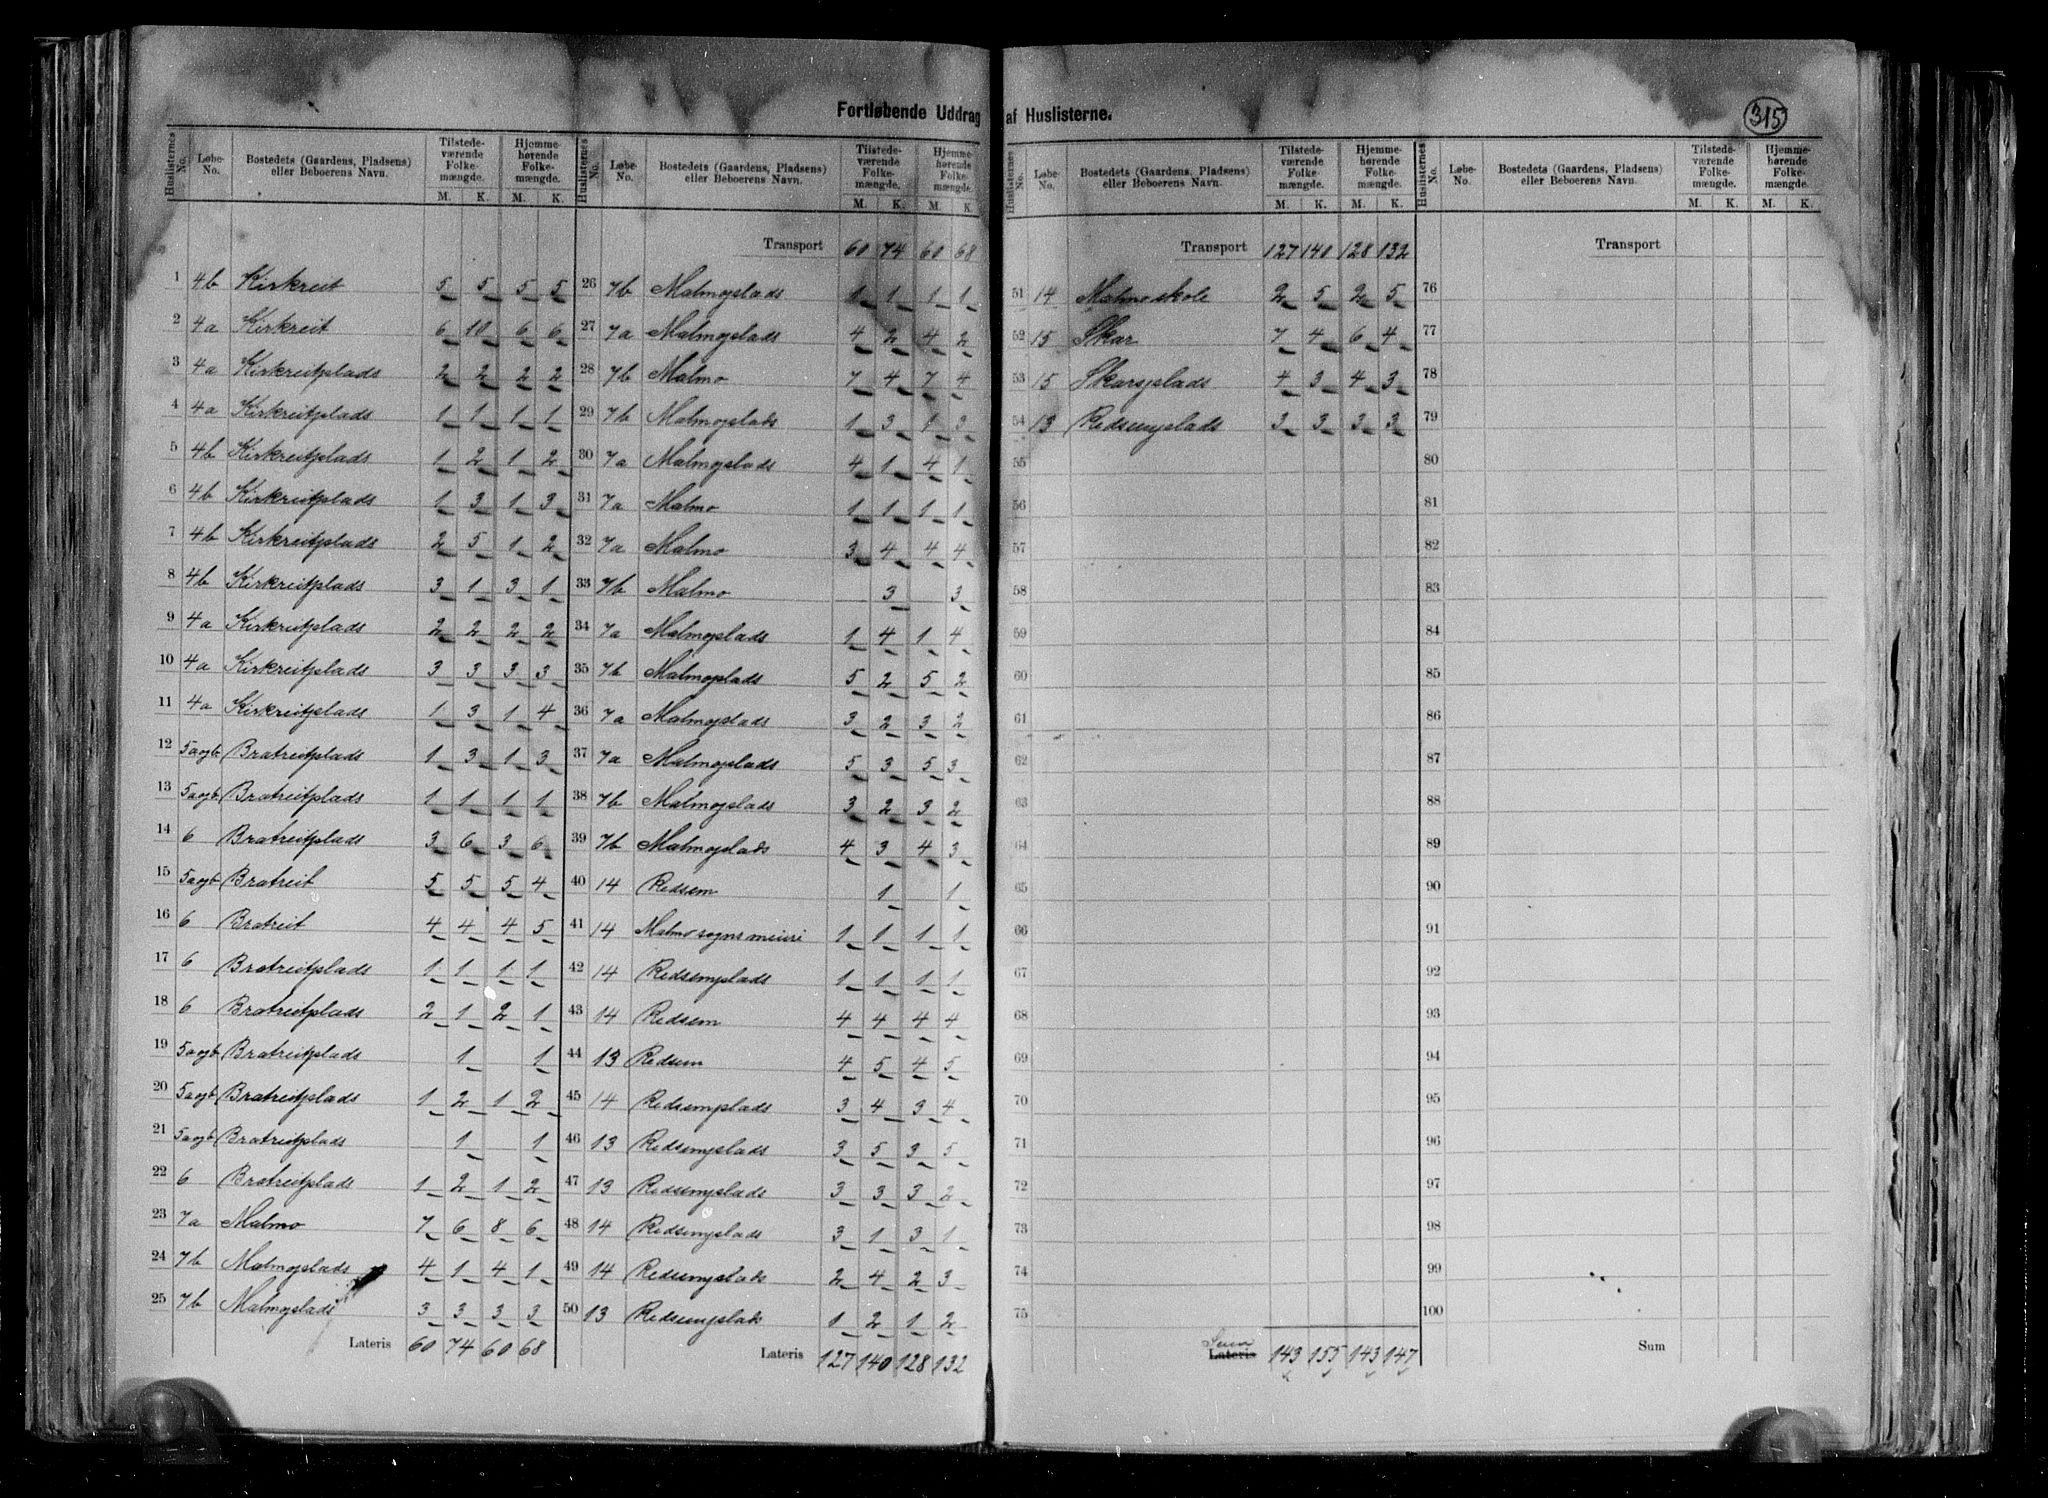 Fortløbende Uddrag af Huslisterne.
315
Huslisternes No. | Løbe-No. | Bostedets (Gaardens, Pladsens) eller Beboerens Navn. | Tilstedeværende Folkemængde. M. K. | Hjemmehørende Folkemængde. M. K.
1 4b Kirkreit 5 5 5 5
2 4a Kirkreit 6 10 6 6
3 4a Kirkreitplads 2 2 2 2
4 4a Kirkreitplads 1 1 1 1
5 4b Kirkreitplads 1 2 1 2
6 4b Kirkreitplads 1 3 1 3
7 4b Kirkreitplads 2 5 1 2
8 4b Kirkreitplads 3 1 3 1
9 4a Kirkreitplads 2 2 2 2
10 4a Kirkreitplads 3 3 3 3
11 4a Kirkreitplads 1 3 1 4
12 5aogb Bratreitplads 1 3 1 3
13 5aogb Bratreitplads 1 1 1 1
14 6 Bratreitplads 3 6 3 6
15 5aogb Bratreit 5 5 5 4
16 6 Bratreit 4 4 4 5
17 6 Bratreitplads 1 1 1 1
18 6 Bratreitplads 2 1 2 1
19 5aogb Bratreitplads 1 1
20 5aogb Bratreitplads 1 2 1 2
21 5aogb Bratreitplads 1 1
22 6 Bratreitplads 1 2 1 2
23 7a Malmo 7 6 8 6
24 7b Malmoplads 4 1 4 1
25 7b Malmoplads 3 3 3 3
Lateris 60 74 60 68
Huslisternes No. | Løbe-No. | Bostedets (Gaardens, Pladsens) eller Beboerens Navn. | Tilstedeværende Folkemængde. M. K. | Hjemmehørende Folkemængde. M. K.
Transport 60 74 60 68
26 7b Malmoplads 1 1 1 1
27 7a Malmoplads 4 2 4 2
28 7b Malmo 7 4 7 4
29 7b Malmoplads 1 3 1 3
30 7a Malmoplads 4 1 4 1
31 7a Malmo 1 1 1 1
32 7a Malmo 3 4 4 4
33 7b Malmo 3 3
34 7a Malmoplads 1 4 1 4
35 7b Malmoplads 5 2 5 2
36 7a Malmoplads 3 2 3 2
37 7a Malmoplads 5 3 5 3
38 7b Malmoplads 3 2 3 2
39 7b Malmoplads 4 3 4 3
40 14 Redsem 1 1
41 14 Malmo sogns meieri 1 1 1 1
42 14 Redsemplads 1 1 1 1
43 14 Redsem 4 4 4 4
44 13 Redsem 4 5 4 5
45 14 Redsemplads 3 4 3 4
46 13 Redsemplads 3 5 3 5
47 13 Redsemplads 3 3 3 2
48 14 Redsemplads 3 1 3 1
49 14 Redsemplads 2 4 2 3
50 13 Redsemplads 1 2 1 2
Lateris 127 140 128 132
Huslisternes No. | Løbe-No. | Bostedets (Gaardens, Pladsens) eller Beboerens Navn. | Tilstedeværende Folkemængde. M. K. | Hjemmehørende Folkemængde. M. K.
Transport 127 140 128 132
51 14 Malmo skole 2 5 2 5
52 15 Skar 7 4 6 4
53 15 Skarsplads 4 3 4 3
54 13 Redsemplads 3 3 3 3
55
56
57
58
59
60
61
62
63
64
65
66
67
68
69
70
71
72
73
74
75
Sum Lateris 143 155 143 147
Huslisternes No. | Løbe-No. | Bostedets (Gaardens, Pladsens) eller Beboerens Navn. | Tilstedeværende Folkemængde. M. K. | Hjemmehørende Folkemængde. M. K.
Transport
76
77
78
79
80
81
82
83
84
85
86
87
88
89
90
91
92
93
94
95
96
97
98
99
100
Sum